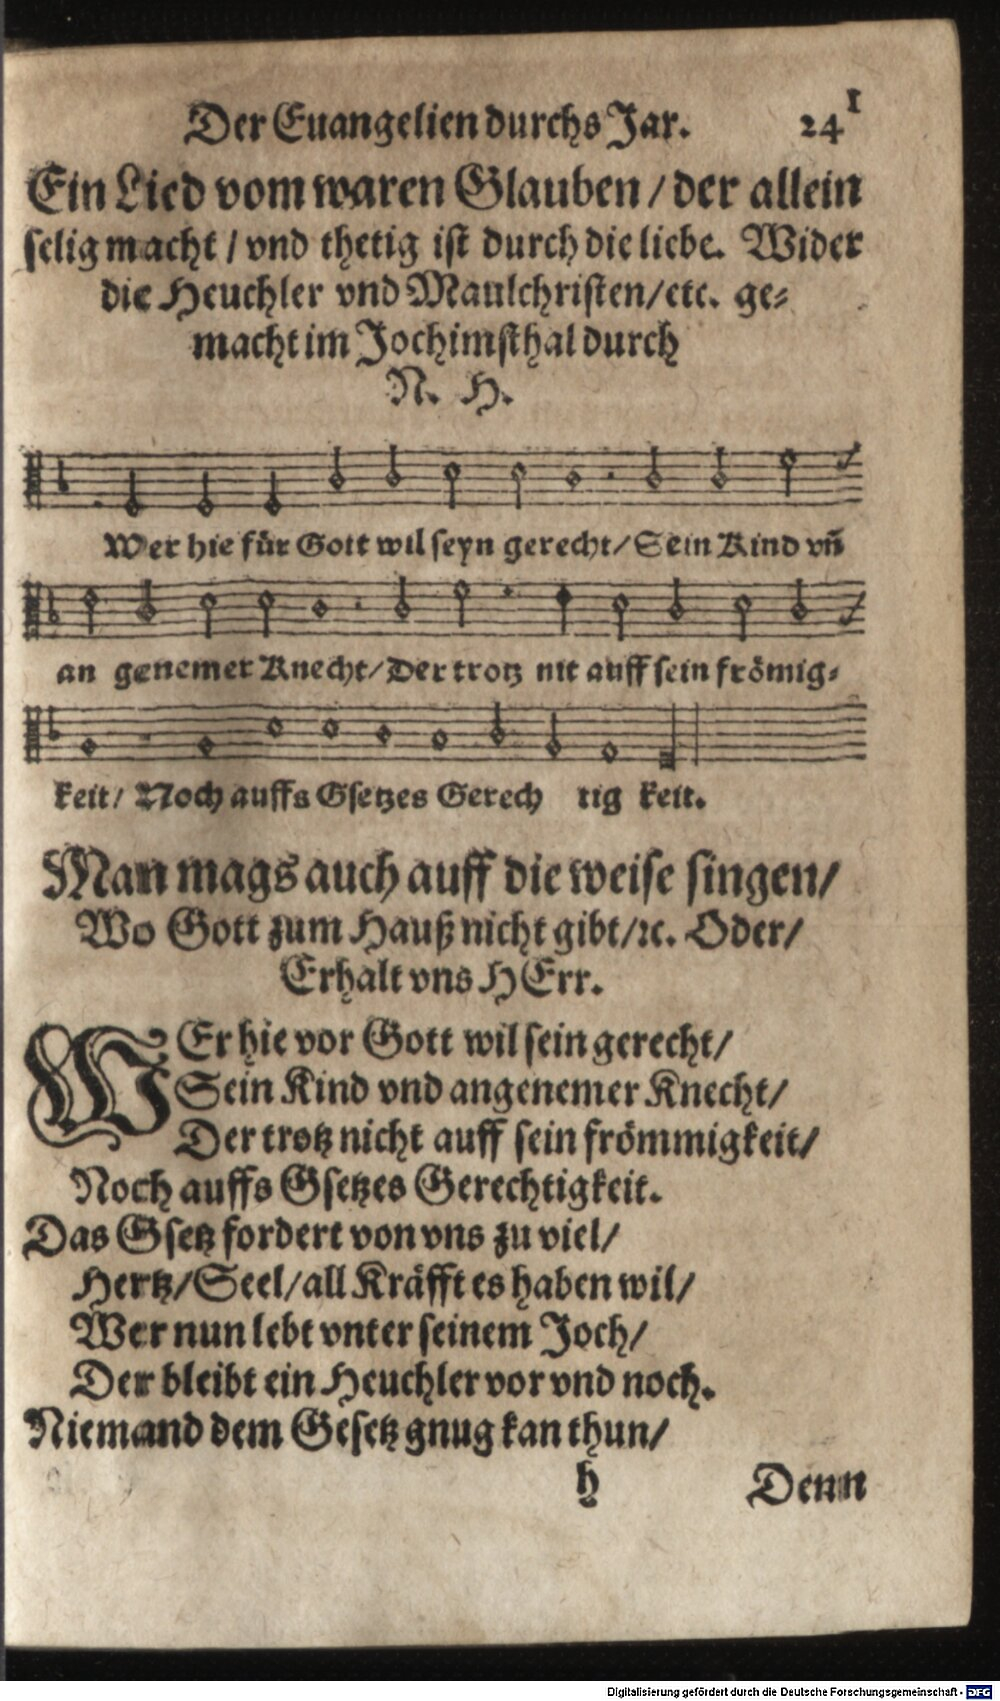 Der Euangelien durchs Jar. 241
Ein Lied vom waren Glauben / der allein
selig macht / vnd thetig ist durch die liebe. Wider
die Heuchler vnd Maulchristen/etc. ge⸗
macht im Jochimsthal durch
N. H.
Wer hie für Gott wil seyn gerecht/ Sein Kind vñ
an genemer Knecht/ Der trotz nit auff sein frömig⸗
keit/ Noch auffs Gsetzes Gerech tig keit.
Man mags auch auff die weise singen/
Wo Gott zum Hauß nicht gibt/ꝛc. Oder/
Erhalt vns HErr.
WEr hie vor Gott wil sein gerecht/
Sein Kind vnd angenemer Knecht/
Der trotz nicht auff sein frömmigkeit/
Noch auffs Gsetzes Gerechtigkeit.
Das Gsetz fordert von vns zu viel/
Hertz/Seel/all Kräfft es haben wil/
Wer nun lebt vnter seinem Joch/
Der bleibt ein Heuchler vor vnd noch.
Niemand dem Gesetz gnug kan thun/
h Denn
Digitalisierung gefördert durch die Deutsche Forschungsgemeinschaft - DFG